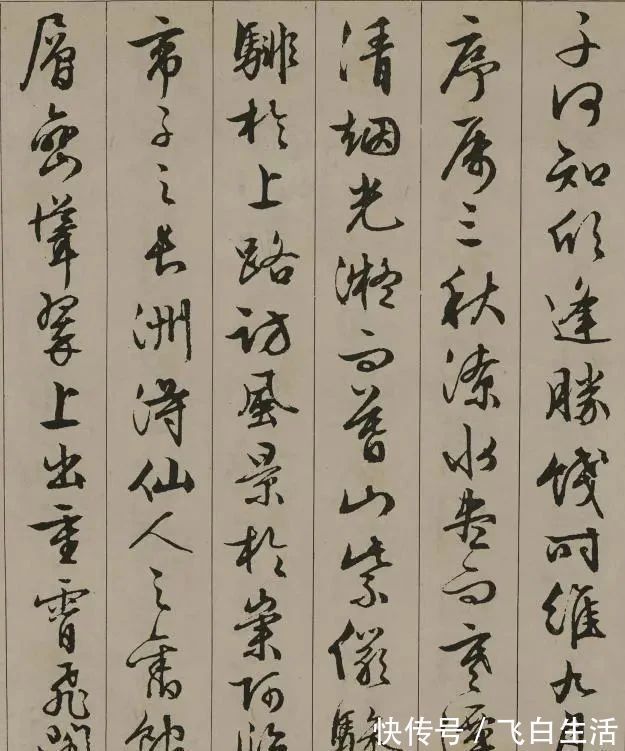 子何知逢勝餞時維九月
序屬三秋潦水盡而寒潭
清烟光凝而暮山紫儼驂
騑於上路訪風景於崇阿臨
帝子之長洲得仙人之舊館
層巒聳翠上出重霄飛閣
快传号/飞白生活